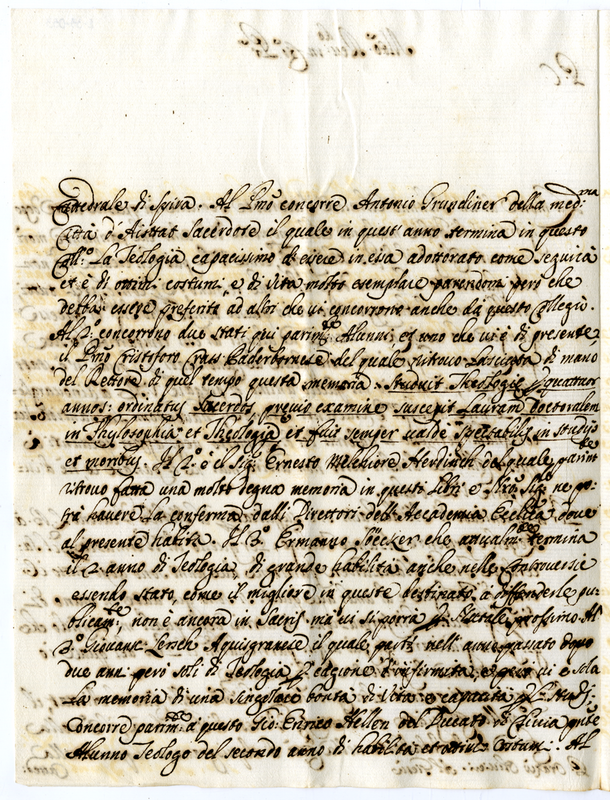 Cattedrale di Spira. Al Pmõ concorre Antonio Grundiner della med.ma
Città d'Aistat Sacerdote il quale in quest'anno termina in questo
Coll.o La Teologia capacissimo di essere in essa adottorato come seguirà
et è di ottimi costumi e di vita molto esemplare parendomi però che
debba essere preferito ad altri che vi concorrono anche da questo Collegio.
Al 2.o concorrono due stati qui parim.te Alunni, et uno che vi è di presente,
il Pmõ Cristoforo Crass Paderbornese del quale ritrovo lasciata di mano
del Rettore di quel tempo questa memoria. Studuit Theologiae quatuor
annos: ordinatus Sacerdos, previo examine suscepit Lauream Doctoralem
in Phylosophia et Theologia et fuit semper valde spectabilis in studijs
et moribus. Il 2.o è il Sig. Ernesto Melchiore del quale parim.te
ritrovo fatta una molto degna memoria in questi Libri e ne po-
trà havere la conferma dalli Direttori dell'Accademia Eccl.ca dove
al presente habita. Il 3.o Ermanno Söcker che attualm.te termina
il 2 anno di Teologia, di grande habilità anche nelle Controversie
essendo stato, come il migliore in queste destinato a diffenderle pu-
blicam.te, non è ancora in Sacris ma vi si porrà p. Natale prossimo. Al
3.o Giovanni Lersch Aquisgranese il quale partì nell'anno passato dopo
due anni però soli di Teologia p. cagione d'infirmità, e di cui vi è sola
La memoria di una singolare bontà di vita e capacità p. li Studj.
Concorre parim.te a questo Gio: Enrico Hellen del Ducato di Clivia pnte
Alunno Teologo del secondo anno di habilità et ottimi Costumi. Al